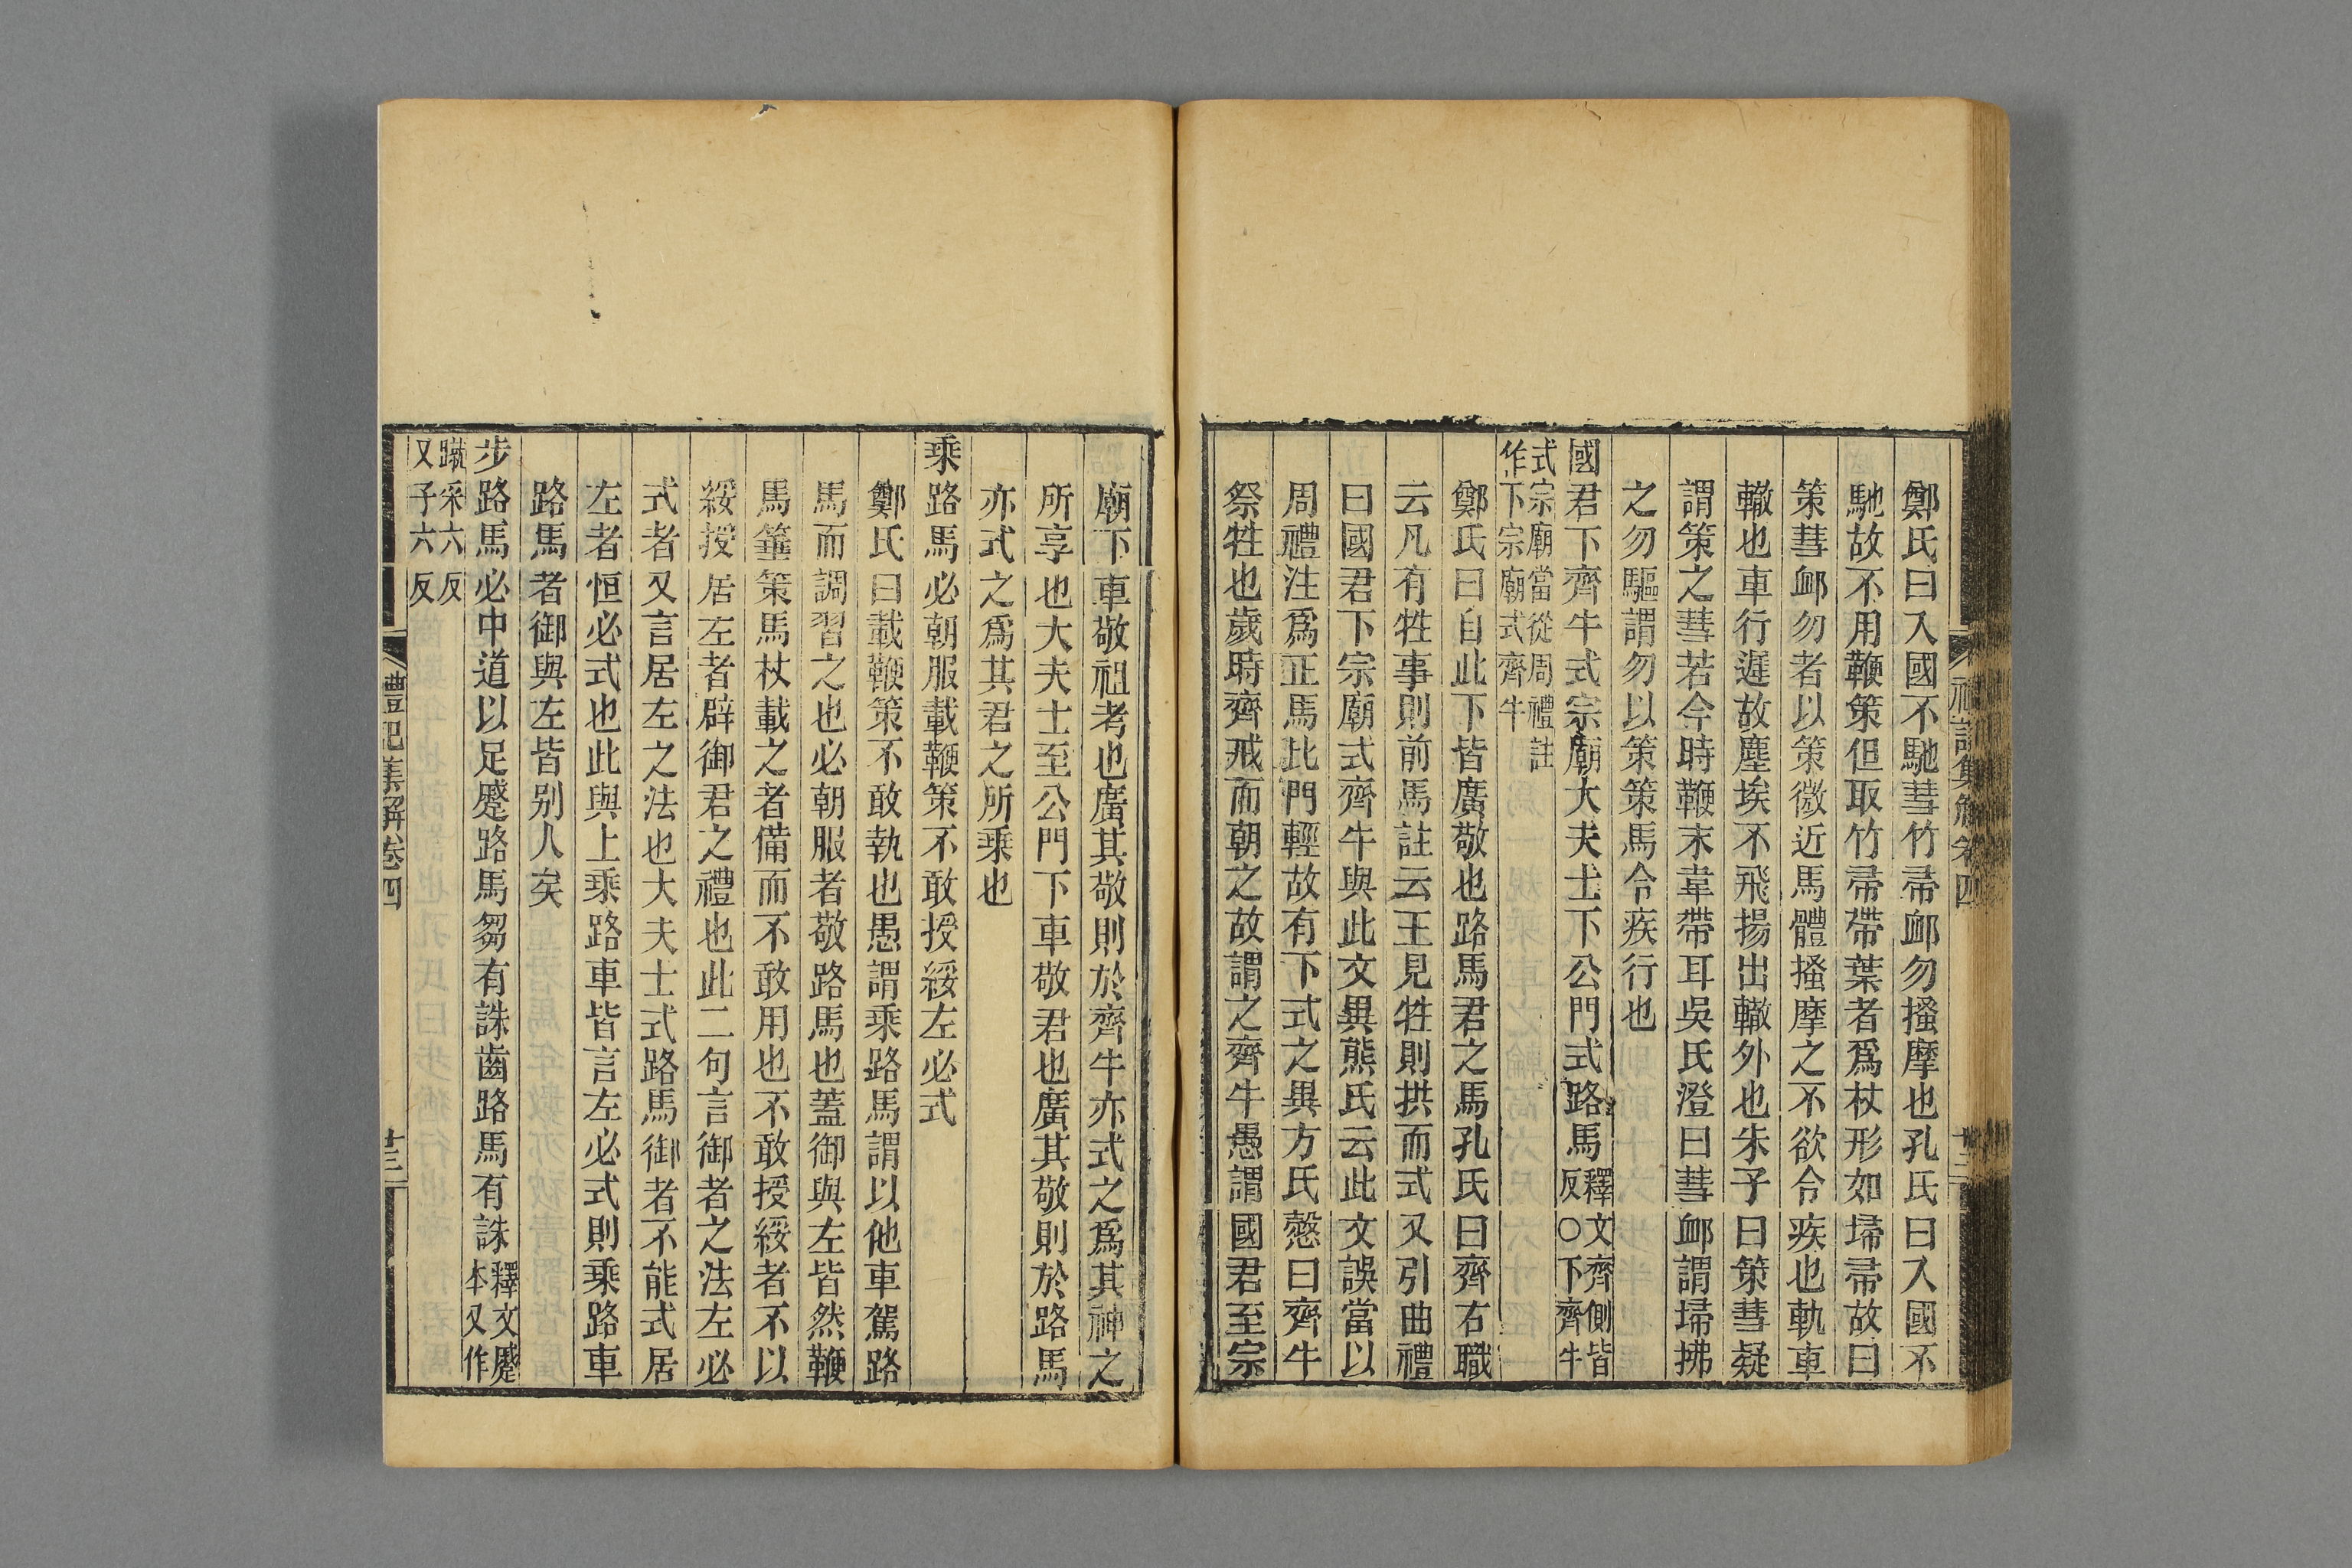 鄭氏曰入國不馳彗竹帚䘏勿搔摩也孔氏曰入國不
馳故不用鞭策但取竹帚帶葉者爲杖形如埽帚故曰
策彗䘏勿者以策微近馬體搔摩之不欲令疾也軌車
轍也車行遲故塵埃不飛揚出轍外也朱子曰策彗疑
謂策之彗若今時鞭末韋帶耳吳氏澄曰彗䘏謂埽拂
之勿驅謂勿以策策馬令疾行也
國君下齊牛式宗廟大夫士下公門式路馬釋文齊側皆反○下齊牛
式宗廟當從周禮註作下宗廟式齊牛
鄭氏曰自此下皆廣敬也路馬君之馬孔氏曰齊右職
云凡有牲事則前馬註云王見牲則拱而式又引曲禮
曰國君下宗廟式齊牛與此文異熊氏云此文誤當以
周禮注爲正馬此門輕故有下式之異方氏慤曰齊牛
祭牲也歲時齊戒而朝之故謂之齊牛愚謂國君至宗
禮記集解卷四
廟下車敬祖考也廣其敬則於齊牛亦式之爲其神之
所享也大夫士至公門下車敬君也廣其敬則於路馬
亦式之爲其君之所乘也
乘路馬必朝服載鞭策不敢授綏左必式
鄭氏曰載鞭策不敢執也愚謂乘路馬謂以他車駕路
馬而調習之也必朝服者敬路馬也蓋御與左皆然鞭
馬箠策馬杖載之者備而不敢用也不敢授綏者不以
綏授居左者辟御君之禮也此二句言御者之法左必
式者又言居左之法也大夫士式路馬御者不能式居
左者恒必式也此與上乘路車皆言左必式則乘路車
路馬者御與左皆别人矣
步路馬必中道以足蹙路馬芻有誅齒路馬有誅釋文蹙本又作
蹴采六反又子六反
禮記集解卷四
廿三